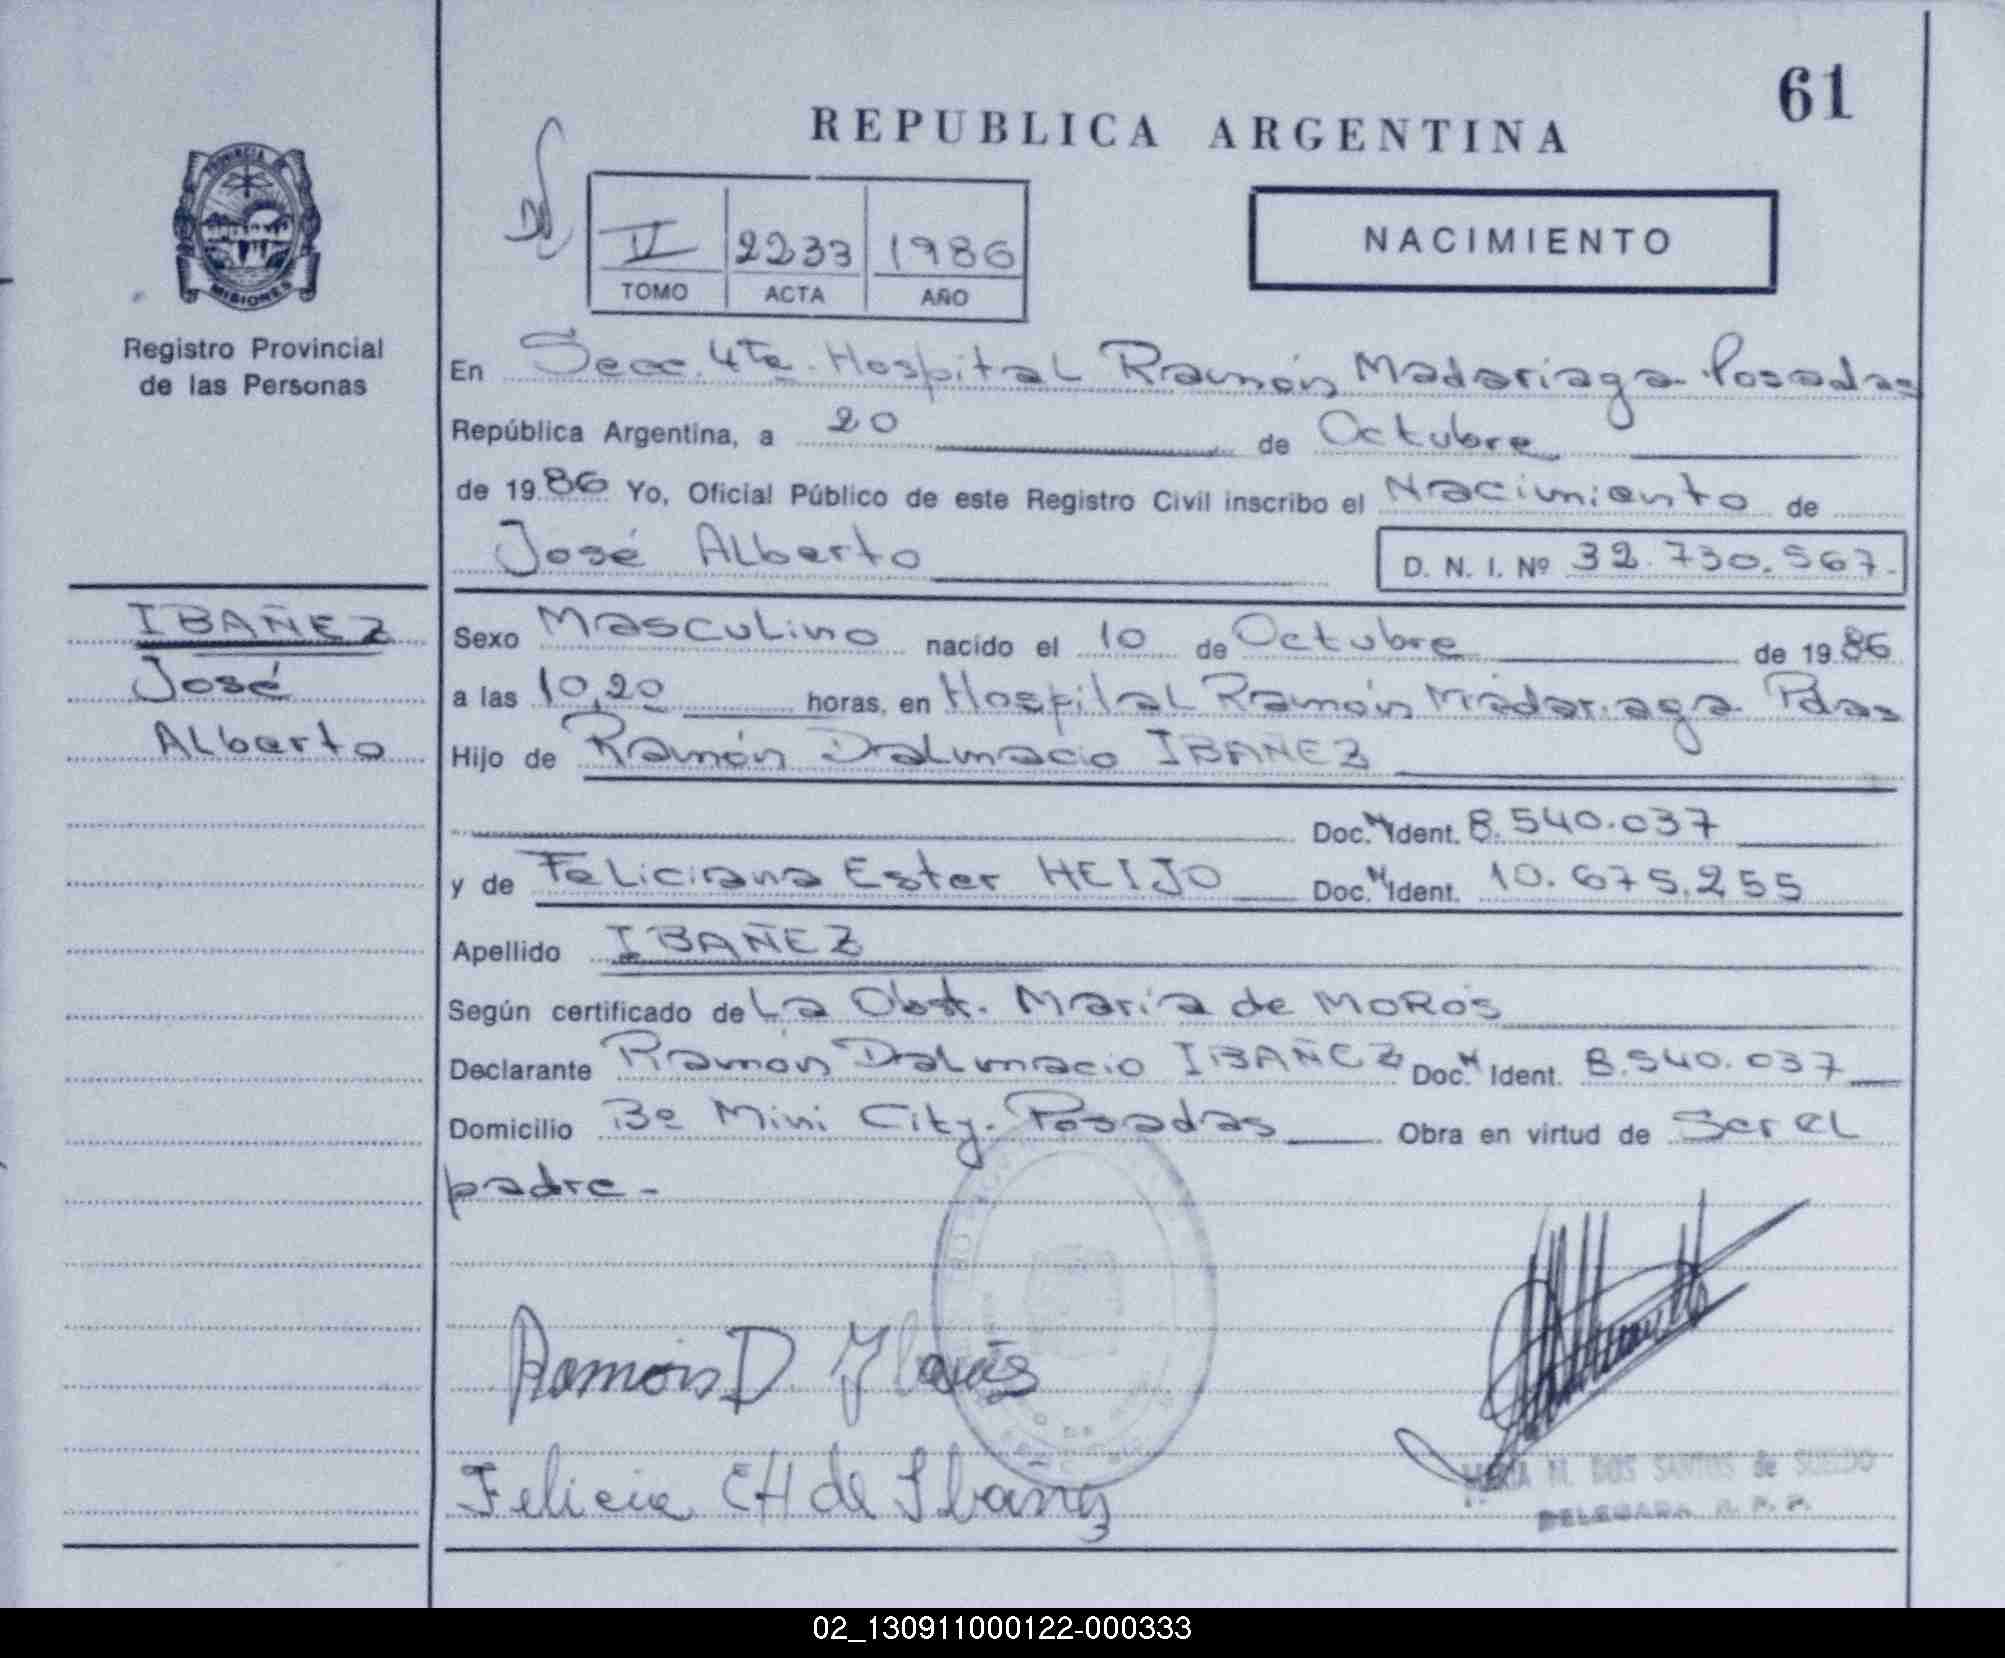 61
REPUBLICA ARGENTINA
PROVINCIA DE
MISIONES
Registro Provincial
de las Personas
NACIMIENTO
IV 2233 1986
TOMO ACTA AÑO
En Secc. 4ta. Hospital Ramón Madariaga Posadas
República Argentina, a 20 de Octubre
de 1986 Yo, Oficial Público de este Registro Civil inscribo el Nacimiento de
José Alberto D. N. I. Nº 32.730.567.-
IBAÑEZ
José
Alberto
Sexo Masculino nacido el 10 de Octubre de 1986
a las 10,20 horas, en Hospital Ramón Madariaga Pdas
Hijo de Ramón Dalmacio IBAÑEZ
Doc. Ident. 8.540.037
y de Feliciana Ester HEIJO Doc. Ident. 10.675.255
Apellido IBAÑEZ
Según certificado de La Obst. María de MOROS
Declarante Ramón Dalmacio IBAÑEZ Doc. Ident. 8.540.037
Domicilio Bº Mini City. Posadas Obra en virtud de Ser el
padre.-
Ramon D Ibañes
Felicia EH de Ibañez
MARIA M. DOS SANTOS de SUELDO
DELEGADA R. P. P.
02_130911000122-000333